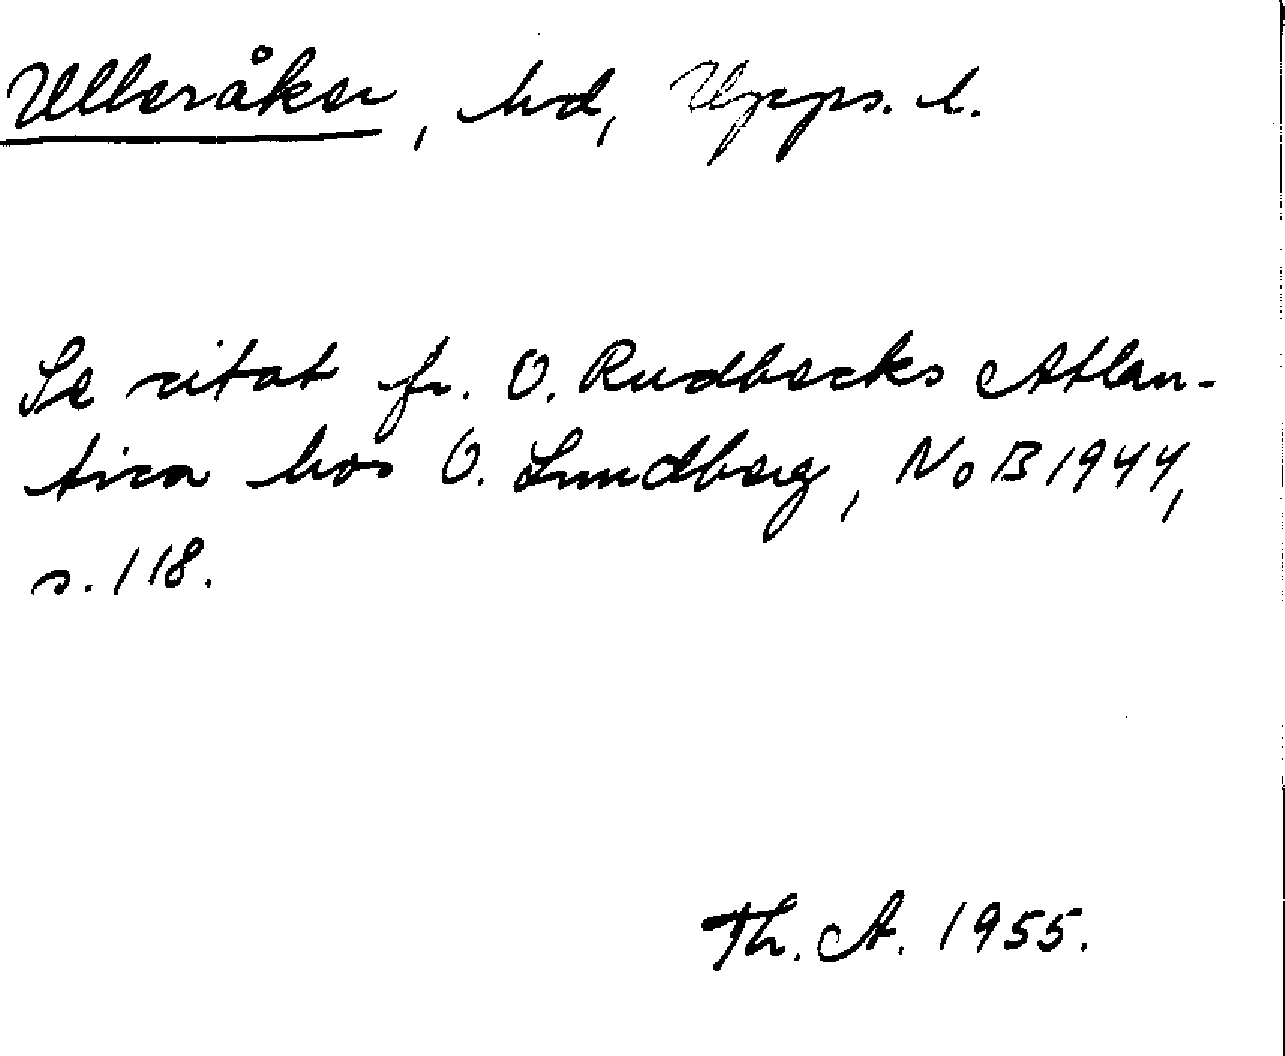 Ulleråker, hd, Upps. l.
Se citat fr. O. Rudbecks Atlan-
tica hos O. Lundberg, NoB 1944,
s. 118.
Th. A. 1955.